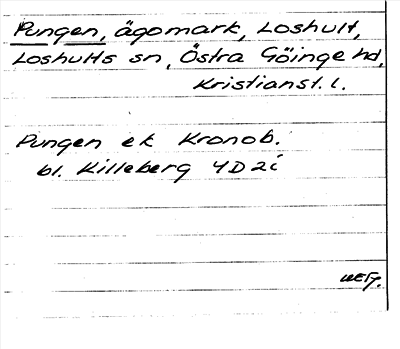 Pungen, ägomark, Loshult,
Loshults sn, Östra Göinge hd,
Kristianst. l.
Pungen ek Kronob.
bl. Killeberg 4D2i